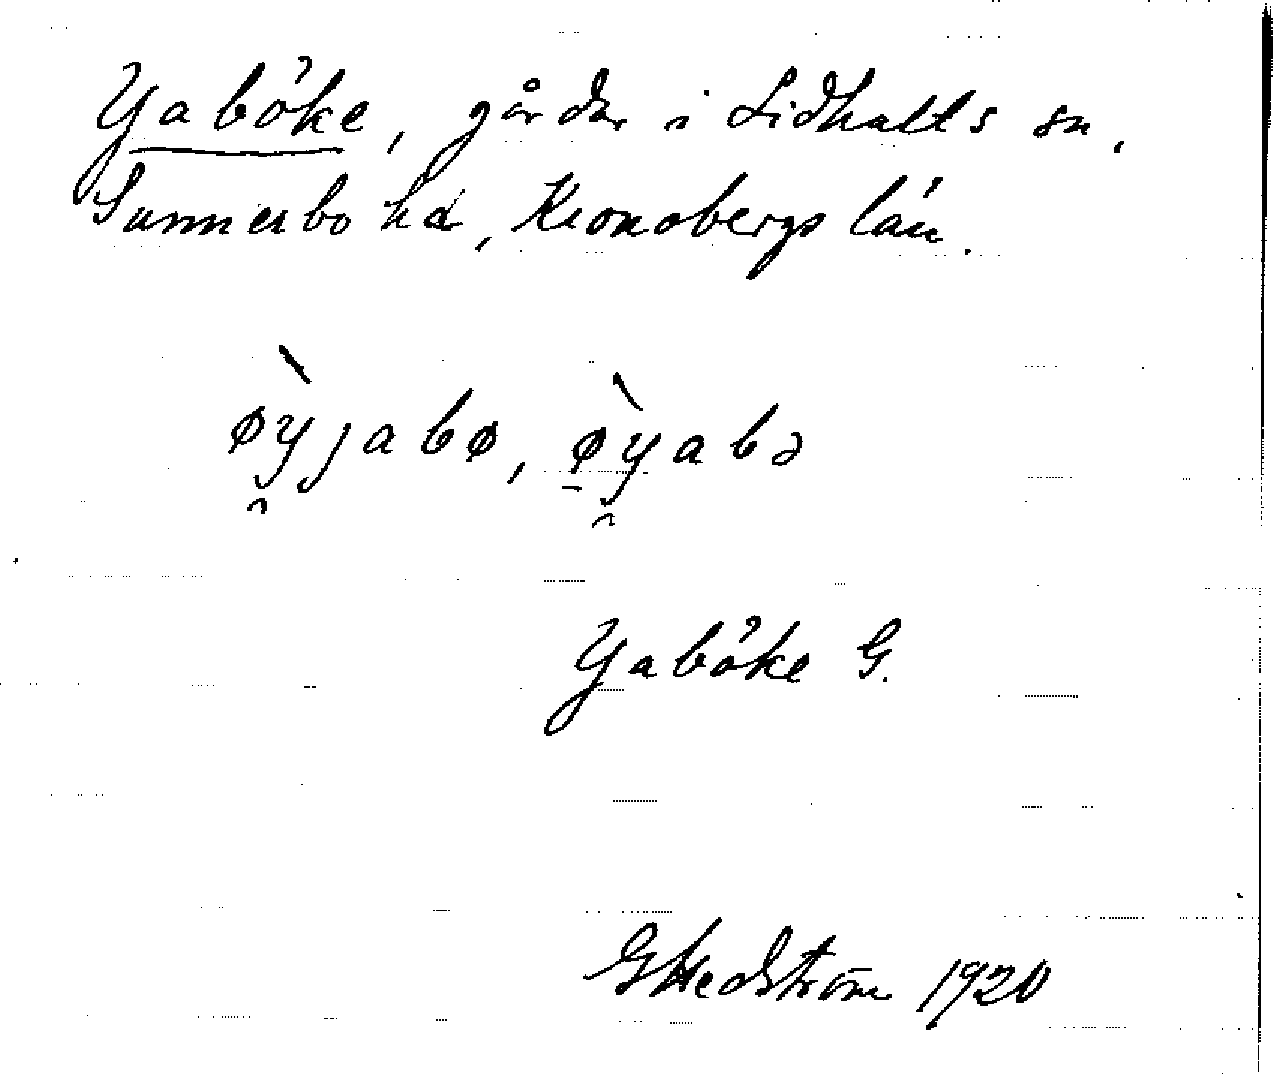 Yaböke, gårdar i Lidhults sn,
Sunnerbo hd, Kronobergs län.
ø̀y̯jabø, ø̠̀y̯abə
Yaböke G.
G Hedström 1920